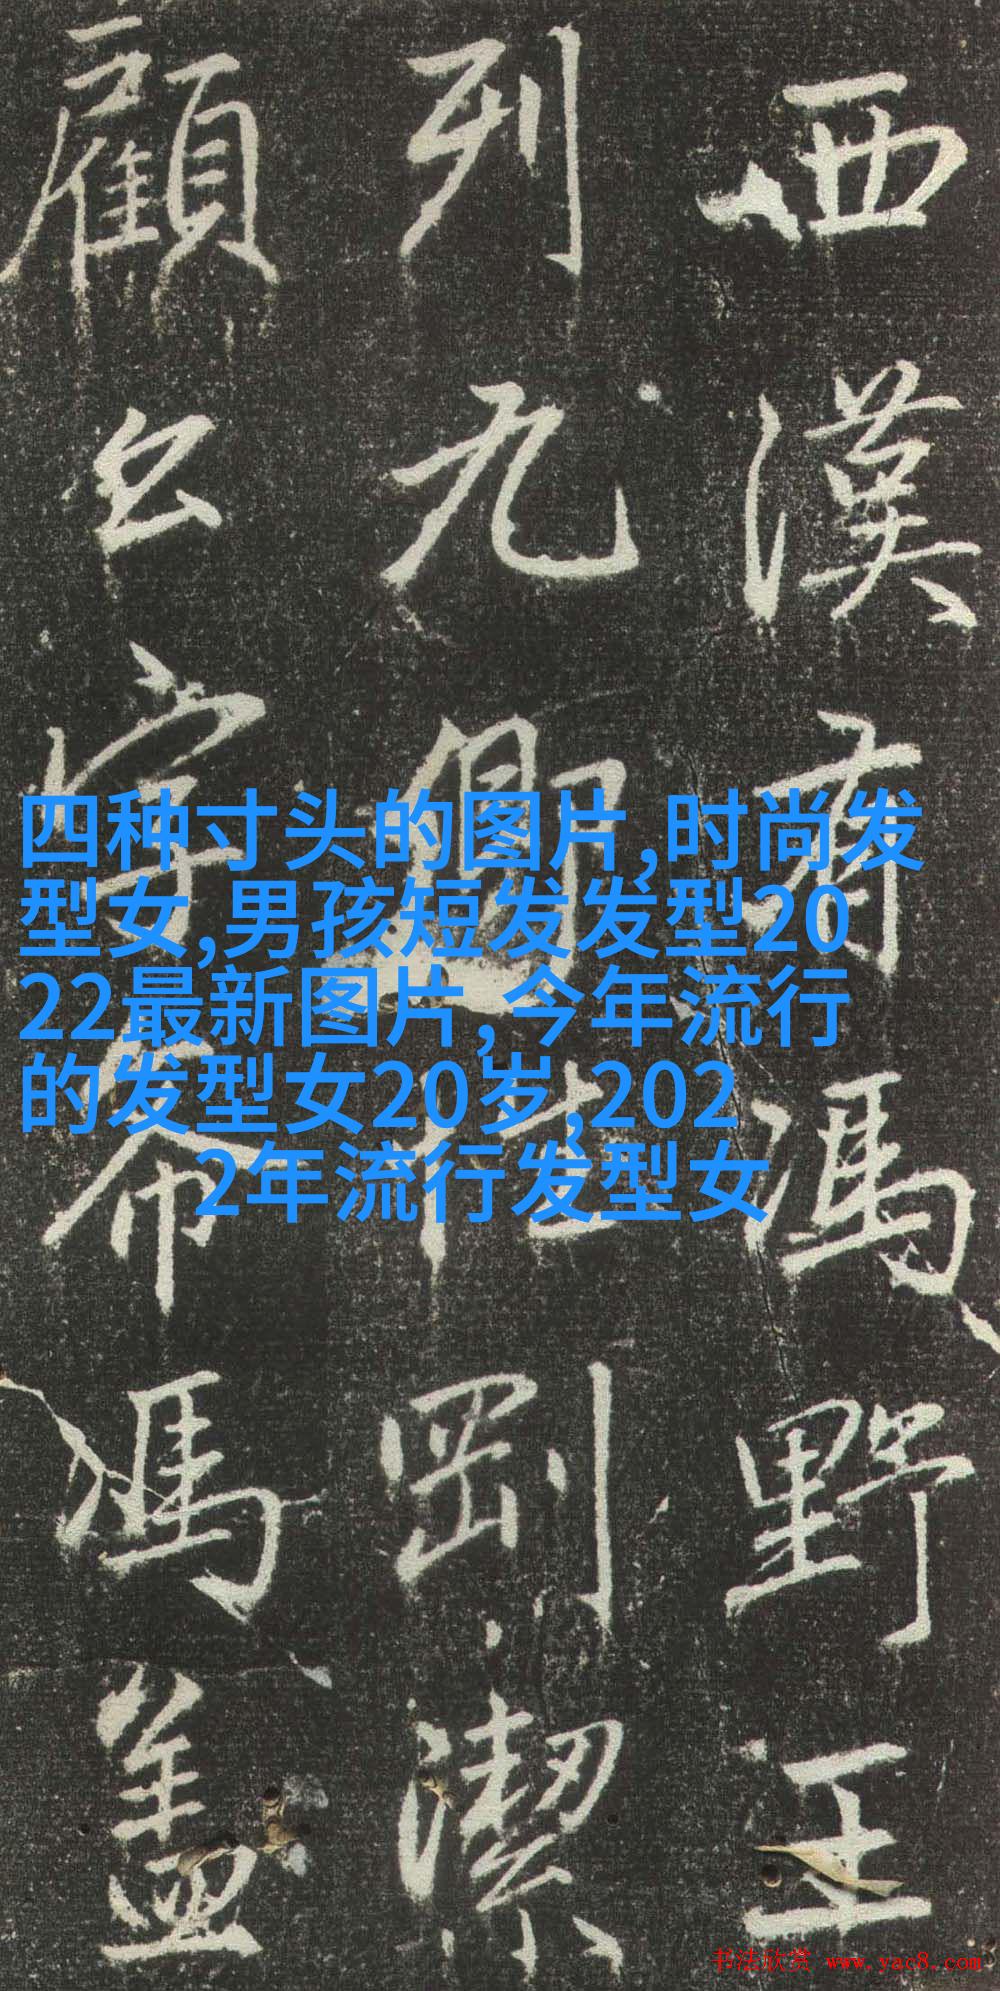 西漢有馮野王
列九卿
剛潔
顧
字
馮盖
四种寸头的图片,时尚发
型女,男孩短发发型20
22最新图片,今年流行
的发型女20岁,202
2年流行发型女
书法欣赏 www.yac8.com